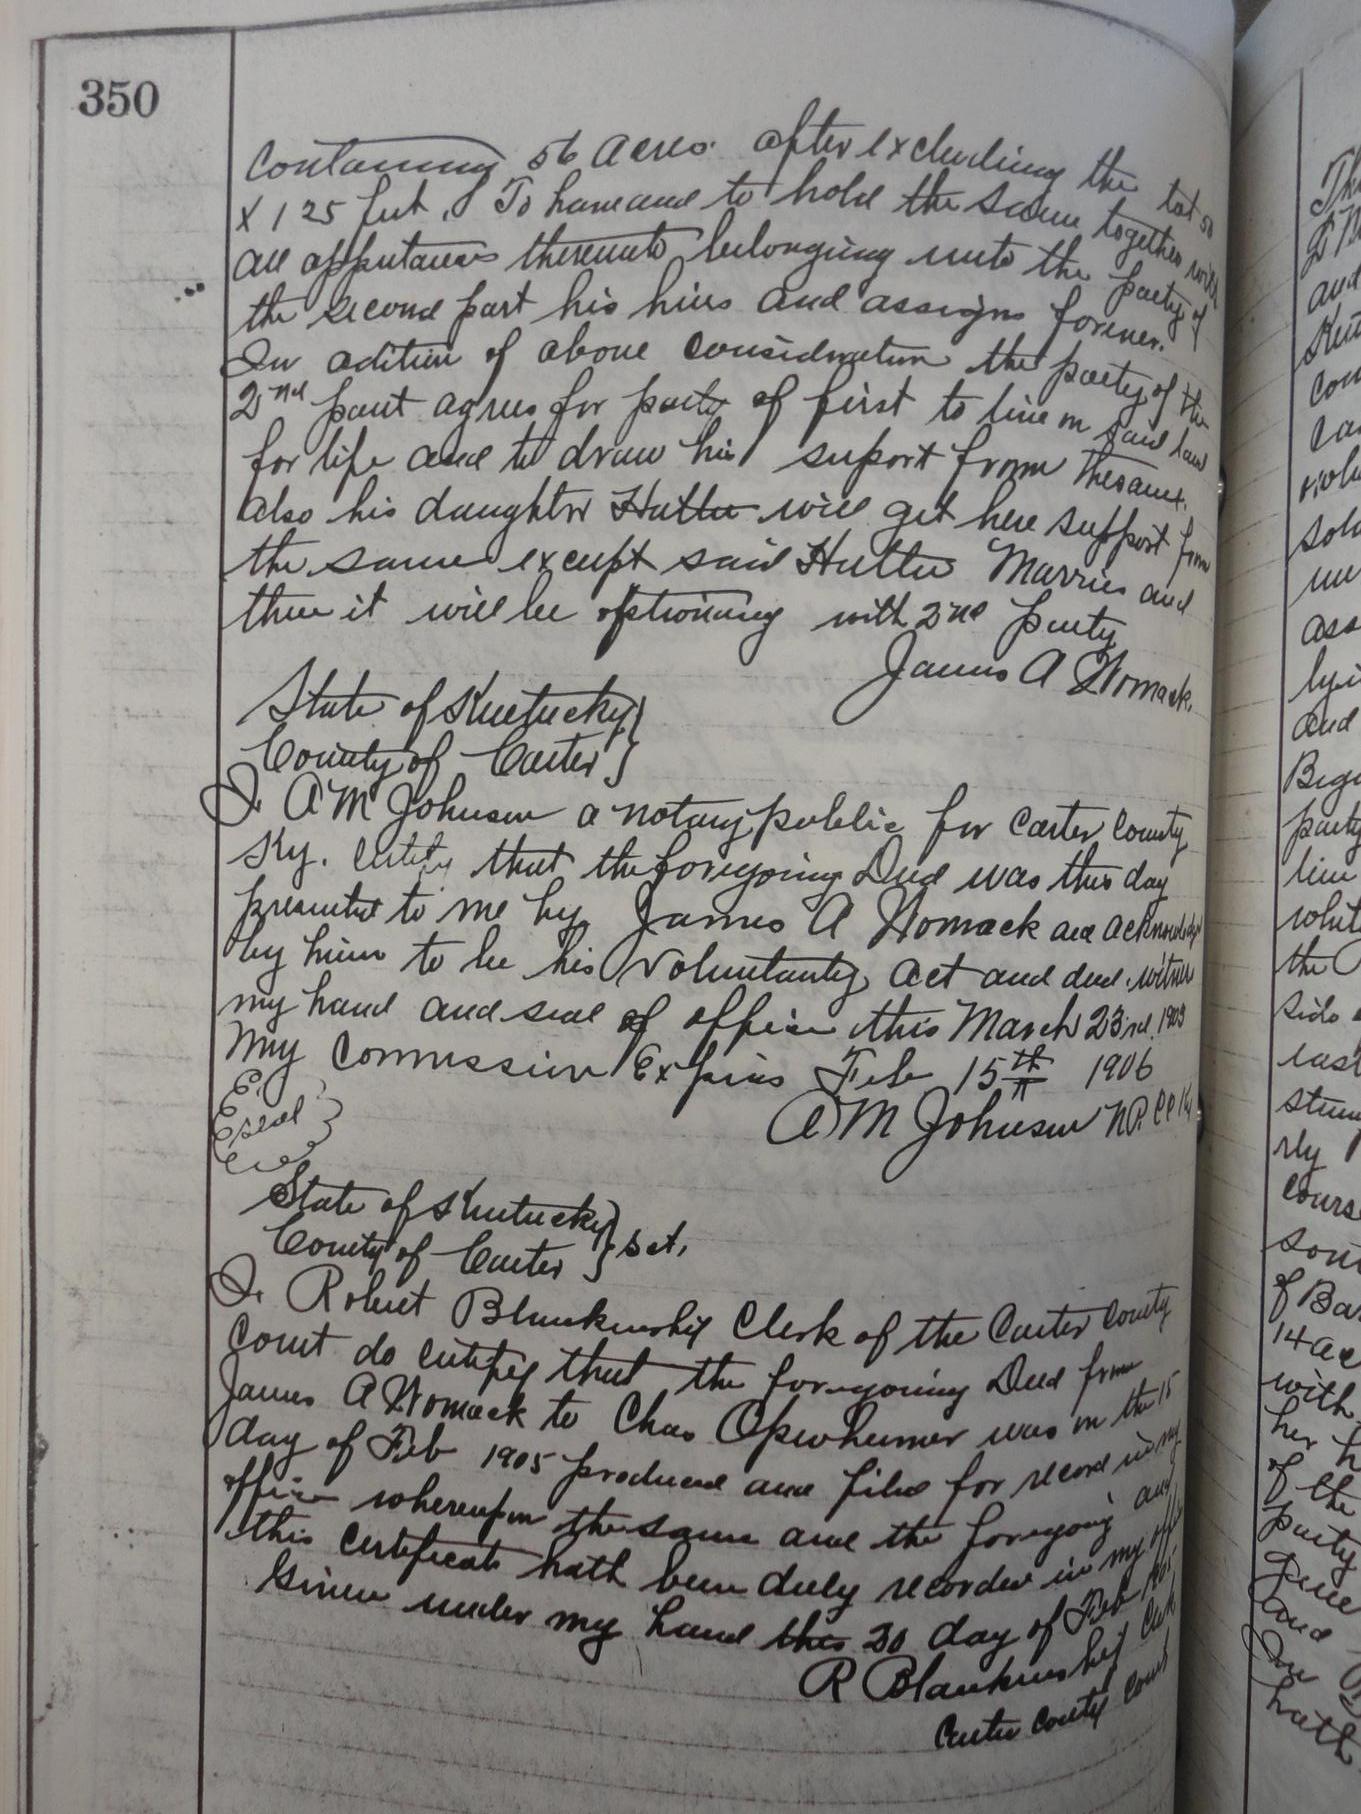 350
containing 56 acres. after excluding the lot 50
x 125 feet, To have and to hold the same together with
all apputances thereunto belonging unto the party of
the second part his hiers and assigns forever.
In adition of above consideration the party of the
2nd part agrees for party of first to live on said land
for life and to draw his suport from the same.
Also his daughter Hattie will get here support from
the same except said Hattie Marries and
then it will be optioning with 2nd party
James A Womack.
State of Kentucky }
County of Carter }
I. A M Johnson a notary public for Carter County
Ky. certify that the foregoing Deed was this day
presented to me by James A Womack and acknowledged
by him to be his voluntarty act and deed. witness
my hand and seal of office this March 23rd. 1903
My Commission Expires Feb 15th 1906
Seal
A M Johnson N.P. CC Ky
State of Kentucky }
County of Carter } Sct.
I. Robert Blankenship Clerk of the Carter County
Court do certify that the foregoing Deed from
James A Womack to Chas Openheimer was on the 15
day of Feb 1905 produced and filed for record in my
office whereupon the same and the foregoing and
this certificate hath been duly recorded in my office
Given under my hand this 20 day of Feb 1905
R Blankenship Clerk
Carter County Court
and
of Bar
14 ac
with
of the
party
and
hath